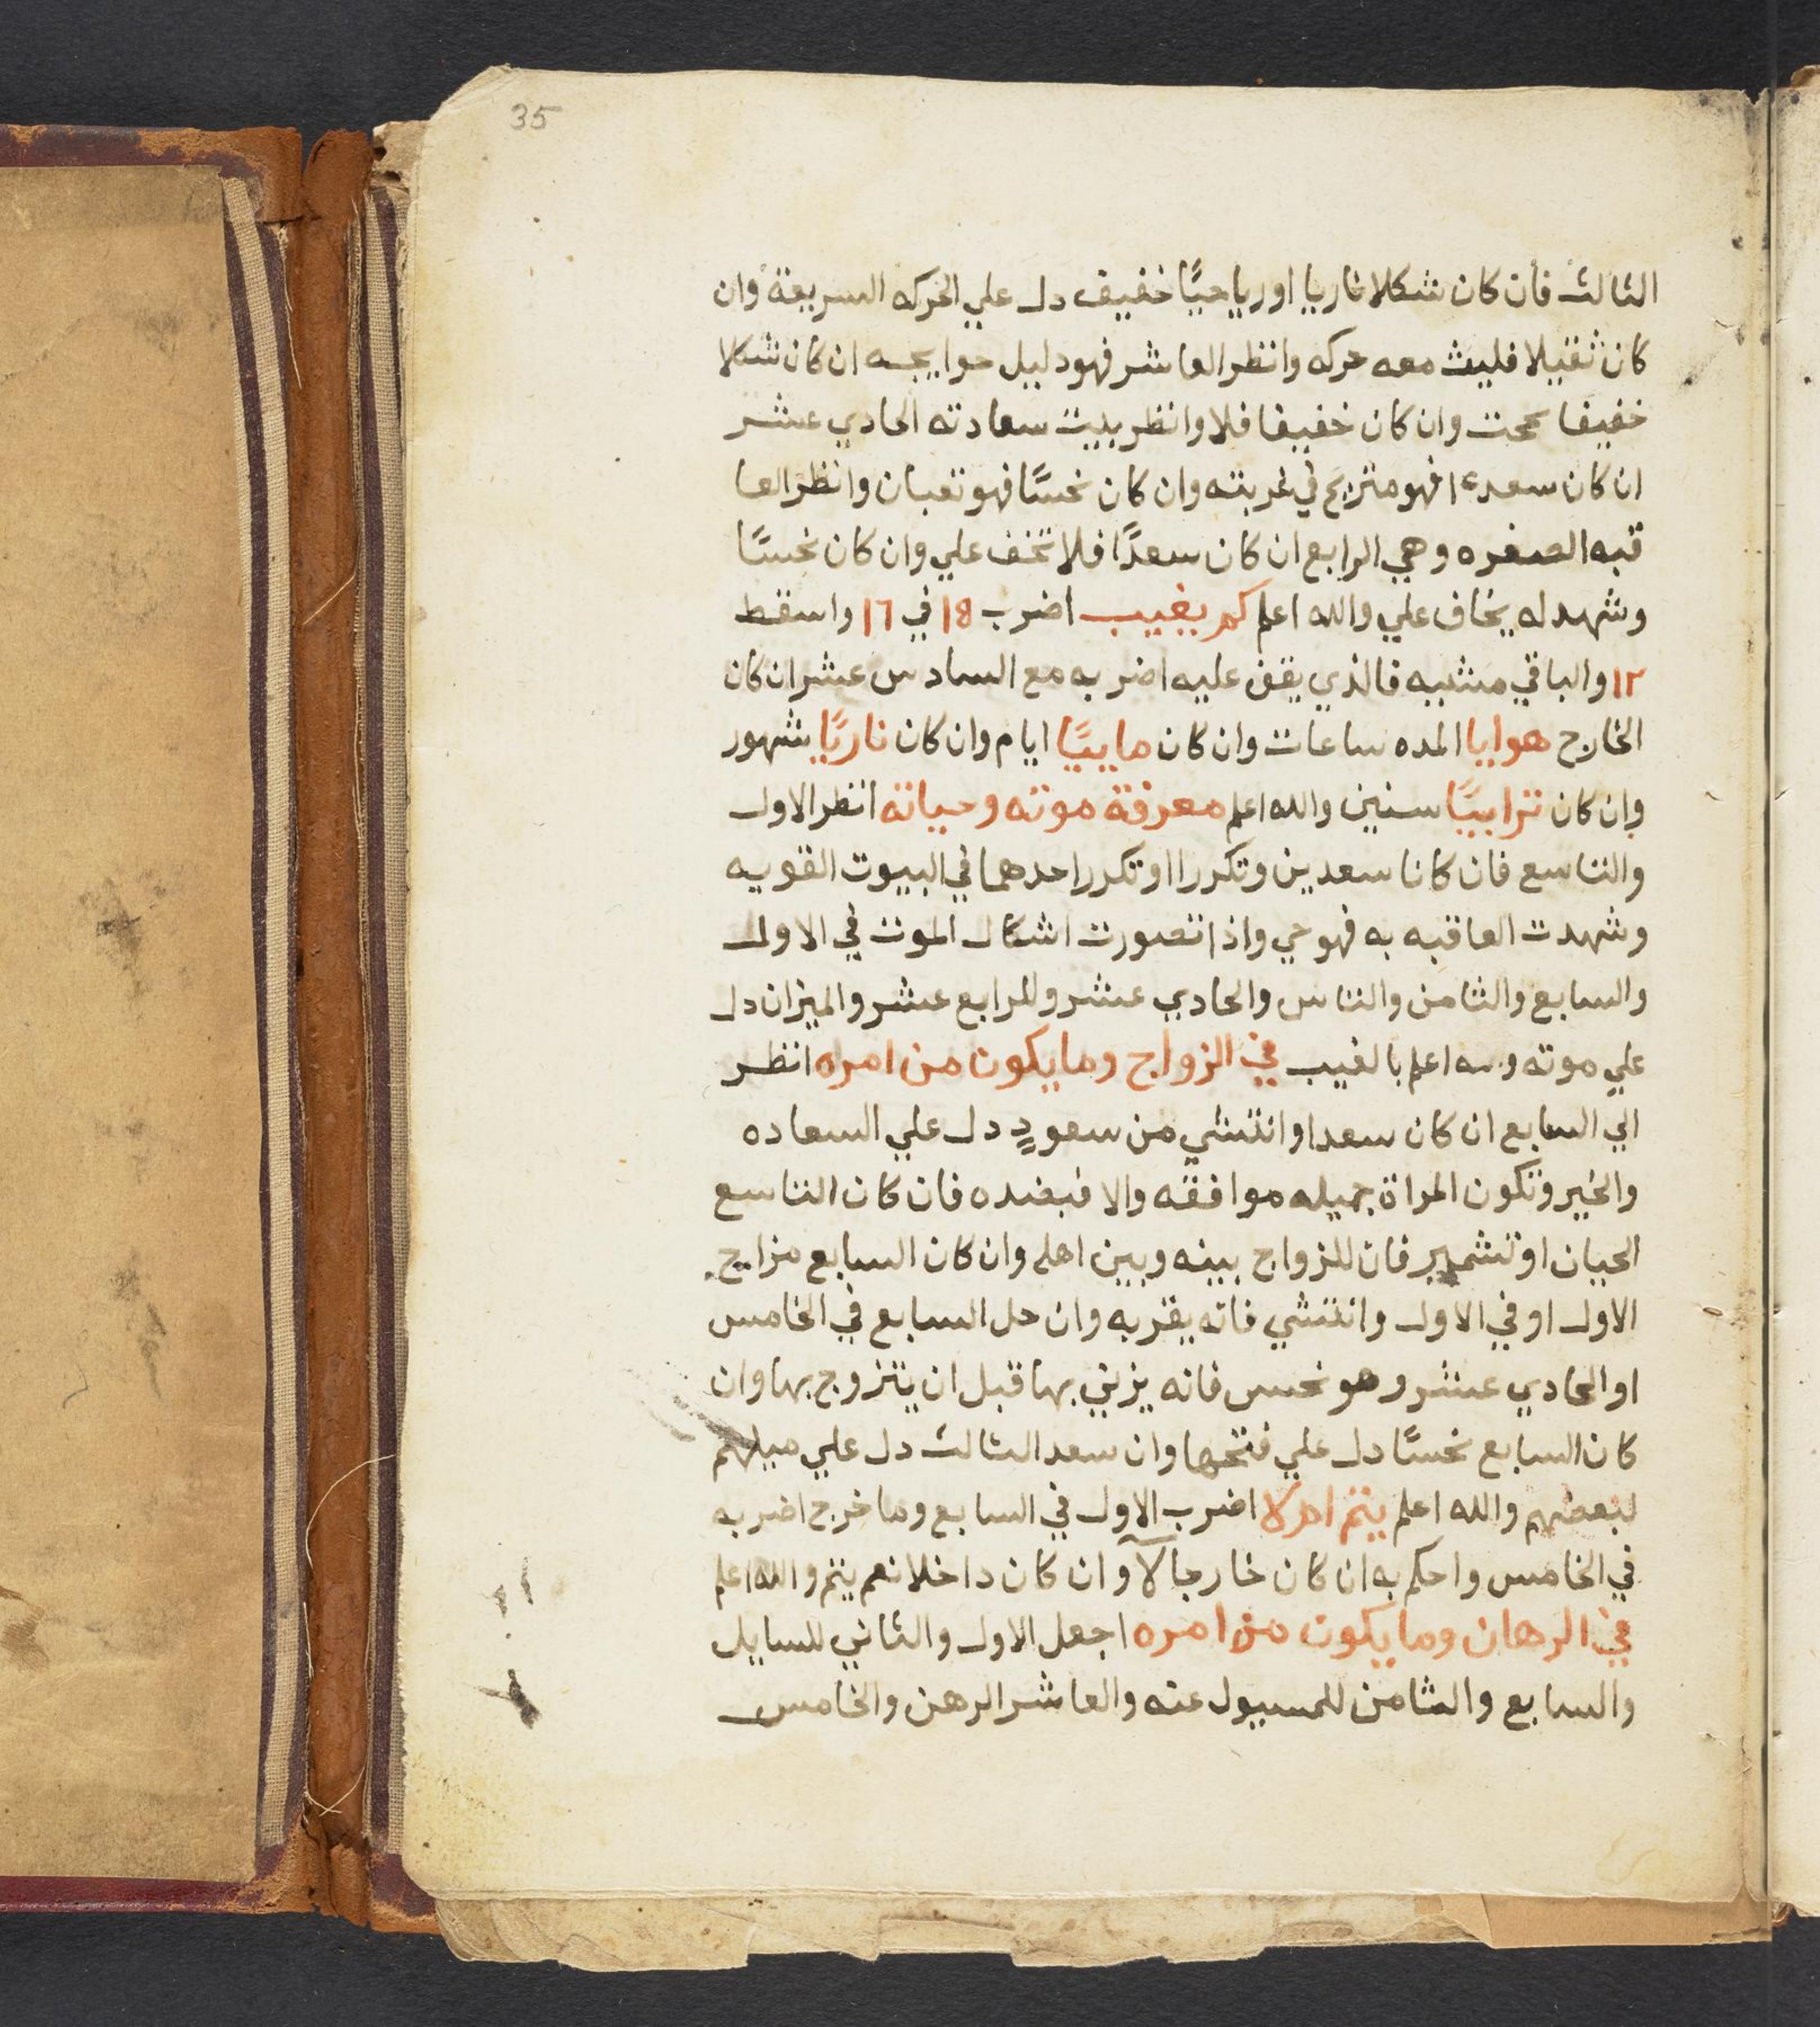 35
الثالث فان كان شكلا ناريا او رياحيًا خفيف دل علي الحركه السريعة وان
كان ثقيلا فليث معه حركه وانظر العاشر فهو دليل حوايجه ان كان شكلا
خفيفا نجحت وان كان خفيفا فلا وانظر بيت سعادته الحادي عشر
ان كان سعدا فهو متريح في غربته وان كان نحسًا فهو تعبان وانظر العا
قبه الصغره وهي الرابع ان كان سعدًا فلا تخف علي وان كان نحسًا
وشهد له يخاف علي والله اعلم كم يغيب اضرب 18 في 16 واسقط
١٢ والباقي مشيه فالذي يقف عليه اضربه مع السادس عشر ان كان
الخارج هوايا المده ساعات وان كان ماييًا ايام وان كان ناريًا شهور
وان كان ترابيًا سنين والله اعلم معرفة موته وحياته انظر الاول
والتاسع فان كانا سعدين وتكررا او تكرر احدهما في البيوت القويه
وشهدت العاقبه به فهو حي واذا تصورت اشكال الموت في الاول
والسابع والثامن والتاس والحادي عشر والرابع عشر والميزان دل
علي موته و اعلم بالغيب في الزواج وما يكون من امره انظر
الي السابع ان كان سعدا وانتشي من سعودٍ دل علي السعاده
والخير وتكون المراة جميله موافقه والا فبضده فان كان التاسع
الحيان او تشمير فان للزواج بينه وبين اهله وان كان السابع مزايج
الاول او في الاول وانتشي فانه يقربه وان حل السابع في الخامس
او الحادي عشر وهو نحس فانه يزني بها قبل ان يتزوج بها وان
كان السابع نحسًا دل علي فتحها وان سعد الثالث دل علي ميلهم
لبعضهم والله اعلم يتم ام لا اضرب الاول في السابع وما خرج اضربه
في الخامس واحكم به ان كان خارجا لا وان كان داخلا نعم يتم والله اعلم
في الرهان وما يكون من امره اجعل الاول والثاني للسايل
والسابع والثامن للمسيول عنه والعاشر الرهن والخامس